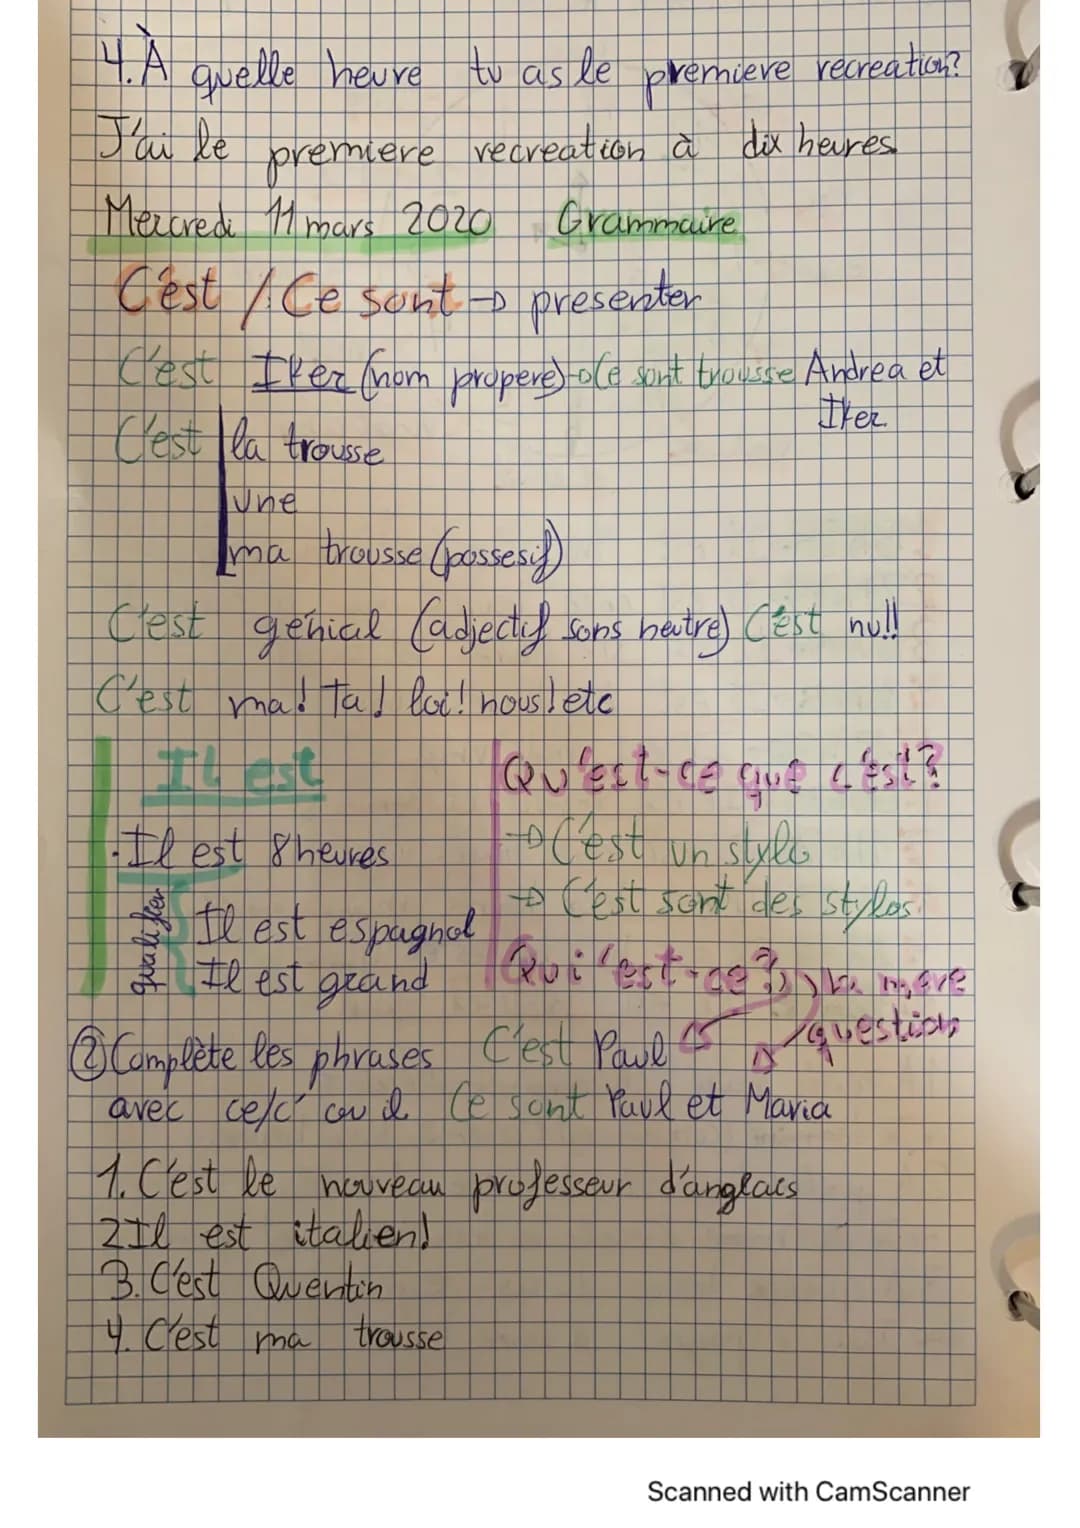 4. À quelle heure tu as le premiere recreation?
J'ai le premiere recreation à dix heures
Mercredi 11 mars 2020 Grammaire
C'est / Ce sont → presenter
C'est Iker (nom propere) → Ce sont trousse Andrea et
Iker
C'est la trousse
une
ma trousse (possesif)
C'est génial (adjectif sans neutre) C'est nul!
C'est ma! Ta! loi! nous! etc
Il est
· Il est 8 heures
qualifier
Il est espagnol
Il est grand
Qu'est-ce que c'est?
→ C'est un stylo
→ C'est sont des stylos
Qui 'est-ce?
question
C'est Paul
Ce sont Paul et Maria
② Complète les phrases
avec ce/c' ou il
1. C'est le nouveau professeur d'anglais
2 Il est italien!
3. C'est Quentin
4. C'est ma trousse
Scanned with CamScanner